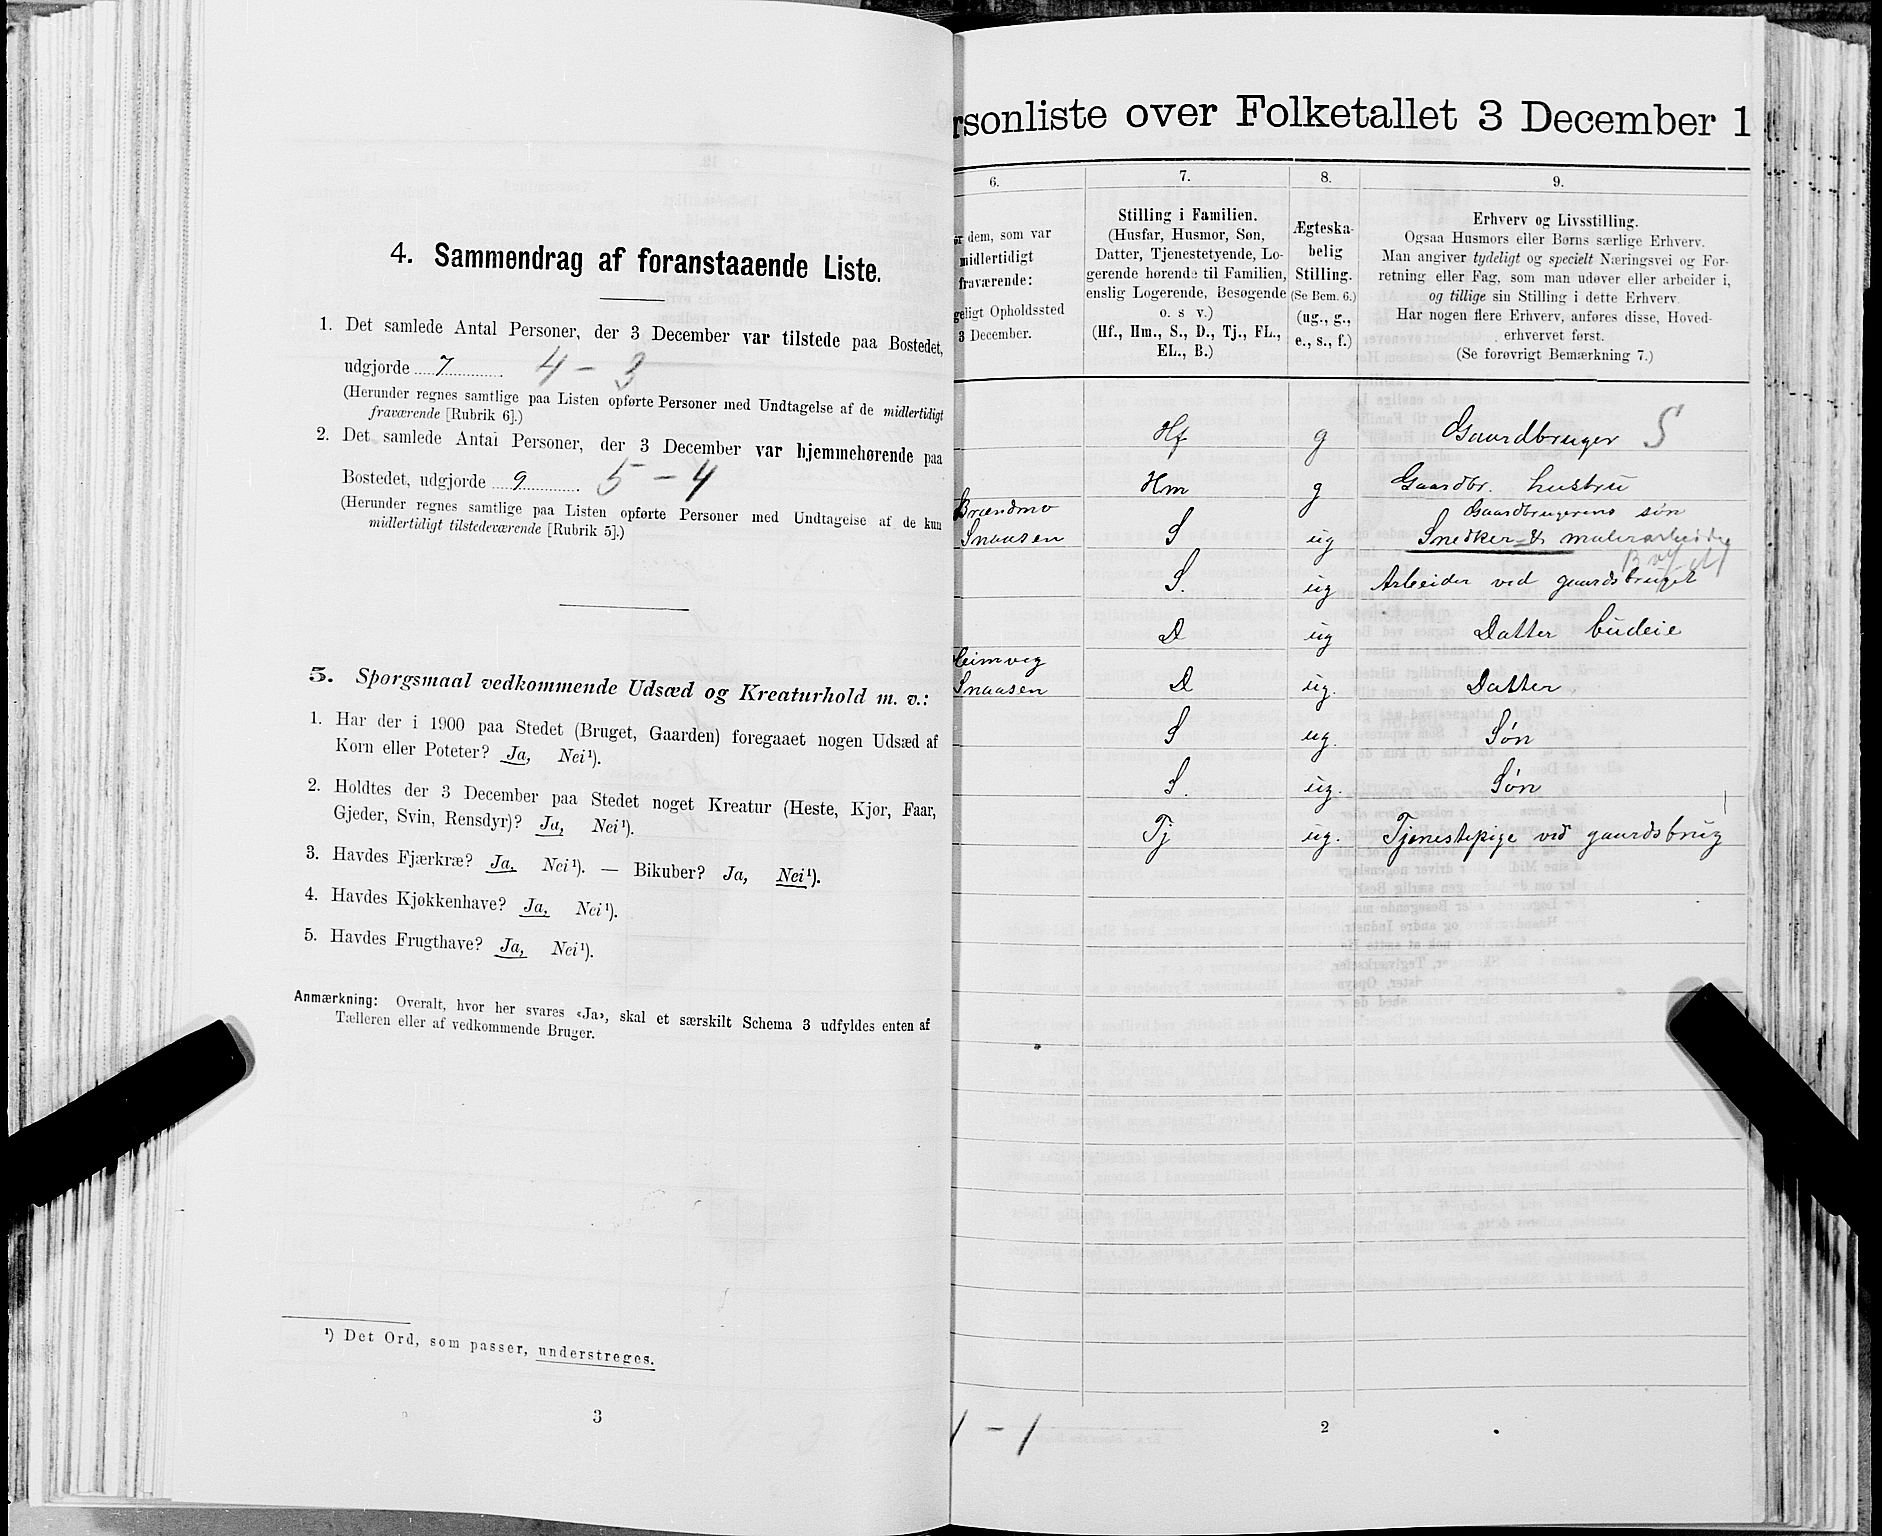 4. Sammendrag af foranstaaende Liste.
1. Det samlede Antal Personer, der 3 December var tilstede paa Bostedet,
udgjorde 7 4 – 3
(Herunder regnes samtlige paa Listen opførte Personer med Undtagelse af de midlertidigt
fraværende [Rubrik 6].)
2. Det samlede Antal Personer, der 3 December var hjemmehørende paa
Bostedet, udgjorde 9 5 – 4
(Herunder regnes samtlige paa Listen opførte Personer med Undtagelse af de kun
midlertidigt tilstedeværende [Rubrik 5].)
5. Spørgsmaal vedkommende Udsæd og Kreaturhold m. v.:
1. Har der i 1900 paa Stedet (Bruget, Gaarden) foregaaet nogen Udsæd af
Korn eller Poteter? Ja, Nei¹).
2. Holdtes der 3 December paa Stedet noget Kreatur (Heste, Kjør, Faar,
Gjeder, Svin, Rensdyr)? Ja, Nei¹).
3. Havdes Fjærkræ? Ja, Nei¹). — Bikuber? Ja, Nei¹).
4. Havdes Kjøkkenhave? Ja, Nei¹).
5. Havdes Frugthave? Ja, Nei¹).
Anmærkning: Overalt, hvor her svares «Ja», skal et særskilt Schema 3 udfyldes enten af
Tælleren eller af vedkommende Bruger.
¹) Det Ord, som passer, understreges.
3
rsonliste over Folketallet 3 December 1
6. 7. 8. 9.
ør dem, som var
midlertidigt
fraværende:
geligt Opholdssted
3 December.
Stilling i Familien.
(Husfar, Husmor, Søn,
Datter, Tjenestetyende, Lo-
gerende hørende til Familien,
enslig Logerende, Besøgende
o. s v.)
(Hf., Hm., S., D., Tj., FL.,
EL., B.)
Ægteska-
belig
Stilling.
(Se Bem. 6.)
(ug., g.,
e., s., f.)
Erhverv og Livsstilling.
Ogsaa Husmors eller Børns særlige Erhverv.
Man angiver tydeligt og specielt Næringsvei og For-
retning eller Fag, som man udøver eller arbeider i,
og tillige sin Stilling i dette Erhverv.
Har nogen flere Erhverv, anføres disse, Hoved-
erhvervet først.
(Se forøvrigt Bemærkning 7.)
Hf g Gaardbruger S
Hm g Gaardbr. hustru
Brændmo Gaardbrugerens søn
Snaasen S ug Snedker & malerarbeider
S. ug Arbeider ved gaardsbruget
D ug Datter budeie
Heimveg
Snaasen D ug. Datter
S ug. Søn
S. ug. Søn
Tj ug. Tjenestepige ved gaardsbrug
– 1
2